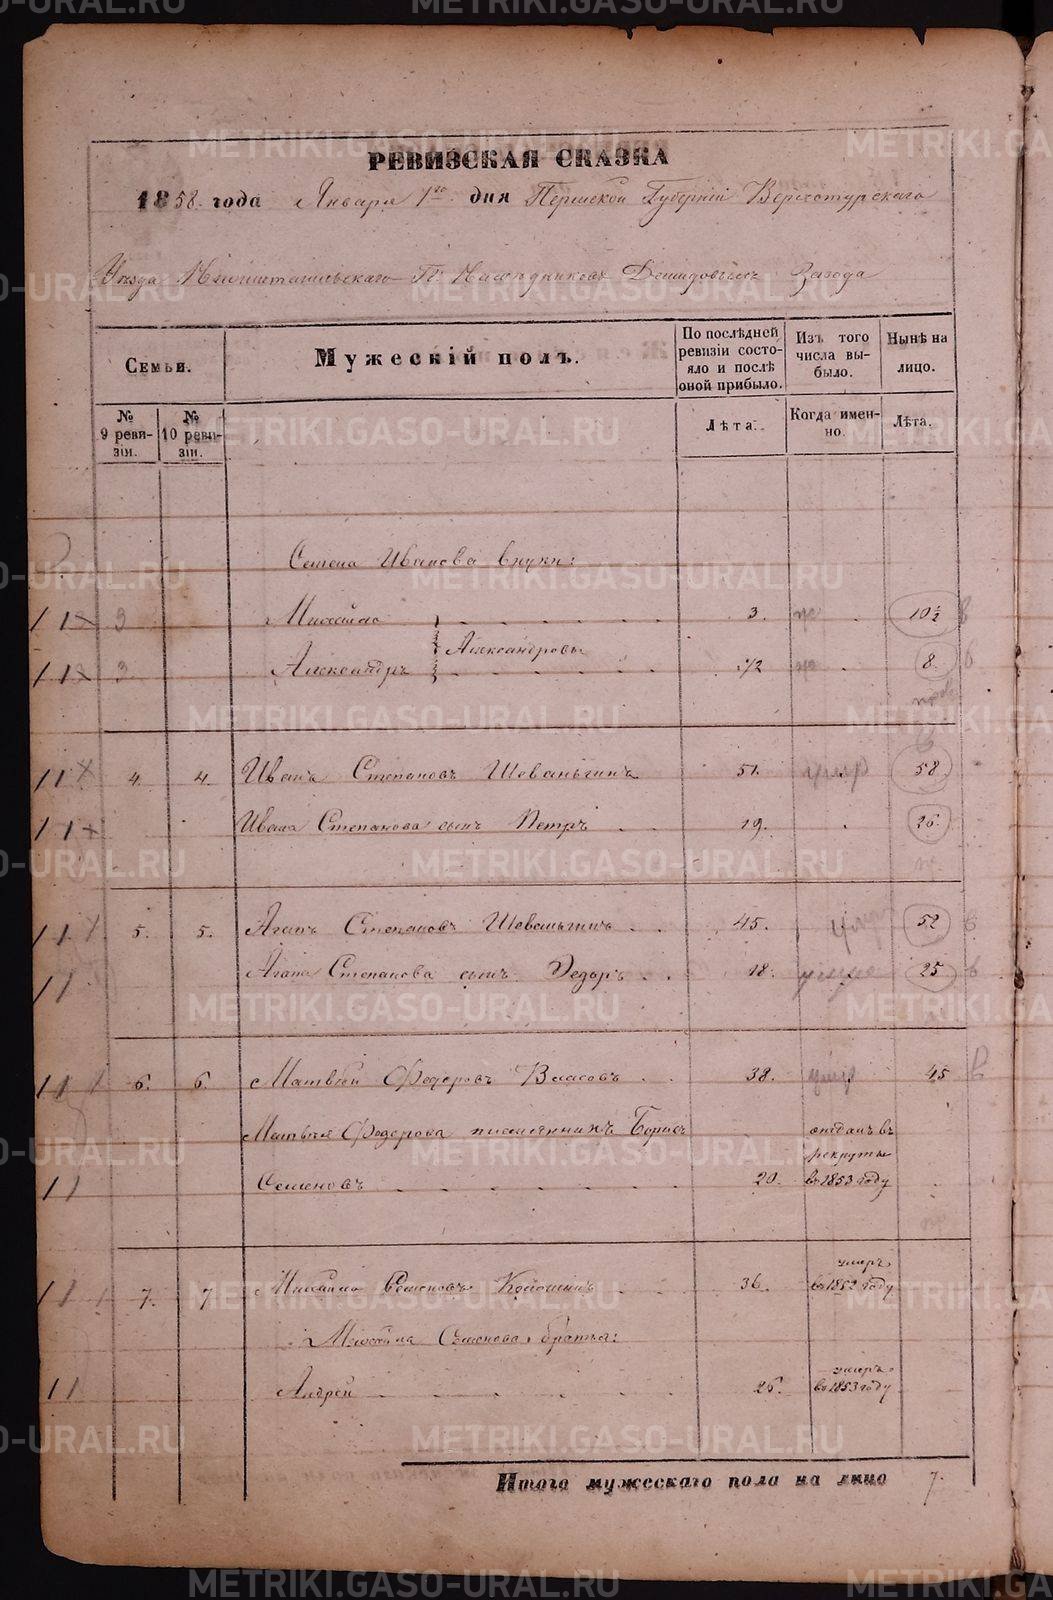 РЕВИЗСКАЯ СКАЗКА
1858 года Января 1го дня Пермской Губерніи Верхотурскаго
Уѣзда Нижнетагильскаго Гг. Наслѣдниковъ Демидовыхъ Завода
Семьи.
Мужескій полъ.
По послѣдней ревизіи состояло и послѣ оной прибыло.
Изъ того числа выбыло.
Нынѣ на лицо.
№ 9 ревизіи.
№ 10 ревизіи.
Лѣта.
Когда именно.
Лѣта.
Семена Иванова внуки:
3 Михайло 3. 10½
Александровы
3 Александръ ½ 8.
4. 4. Иванъ Степановъ Шеваньгинъ 51. умер 58
Ивана Степанова сынъ Петръ 19. 26.
5. 5. Агапъ Степановъ Шеваньгинъ 45. 52
Агапа Степанова сынъ Федоръ 18. умре 25
6. 6. Матвѣй Федоровъ Власовъ 38. умер 45
Матвѣя Федорова племянникъ Борисъ отданъ въ рекруты
Семеновъ 20. въ 1853 году
7. 7 Михайло Семеновъ 36. умеръ въ 1852 году
Михайла Семенова братья:
Андрей 26. умеръ въ 1853 году
Итого мужескаго пола на лицо 7.
METRIKI.GASO-URAL.RU